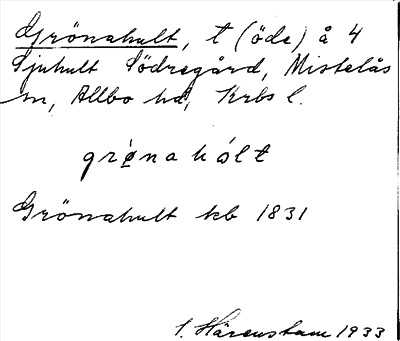 Grönahult, t (öde) å 4
Sjuhult Södregård, Mistelås
sn, Allbo hd, Krbs l.
grö̀nahúlt
Grönahult kb 1831
S. Härenstam 1933